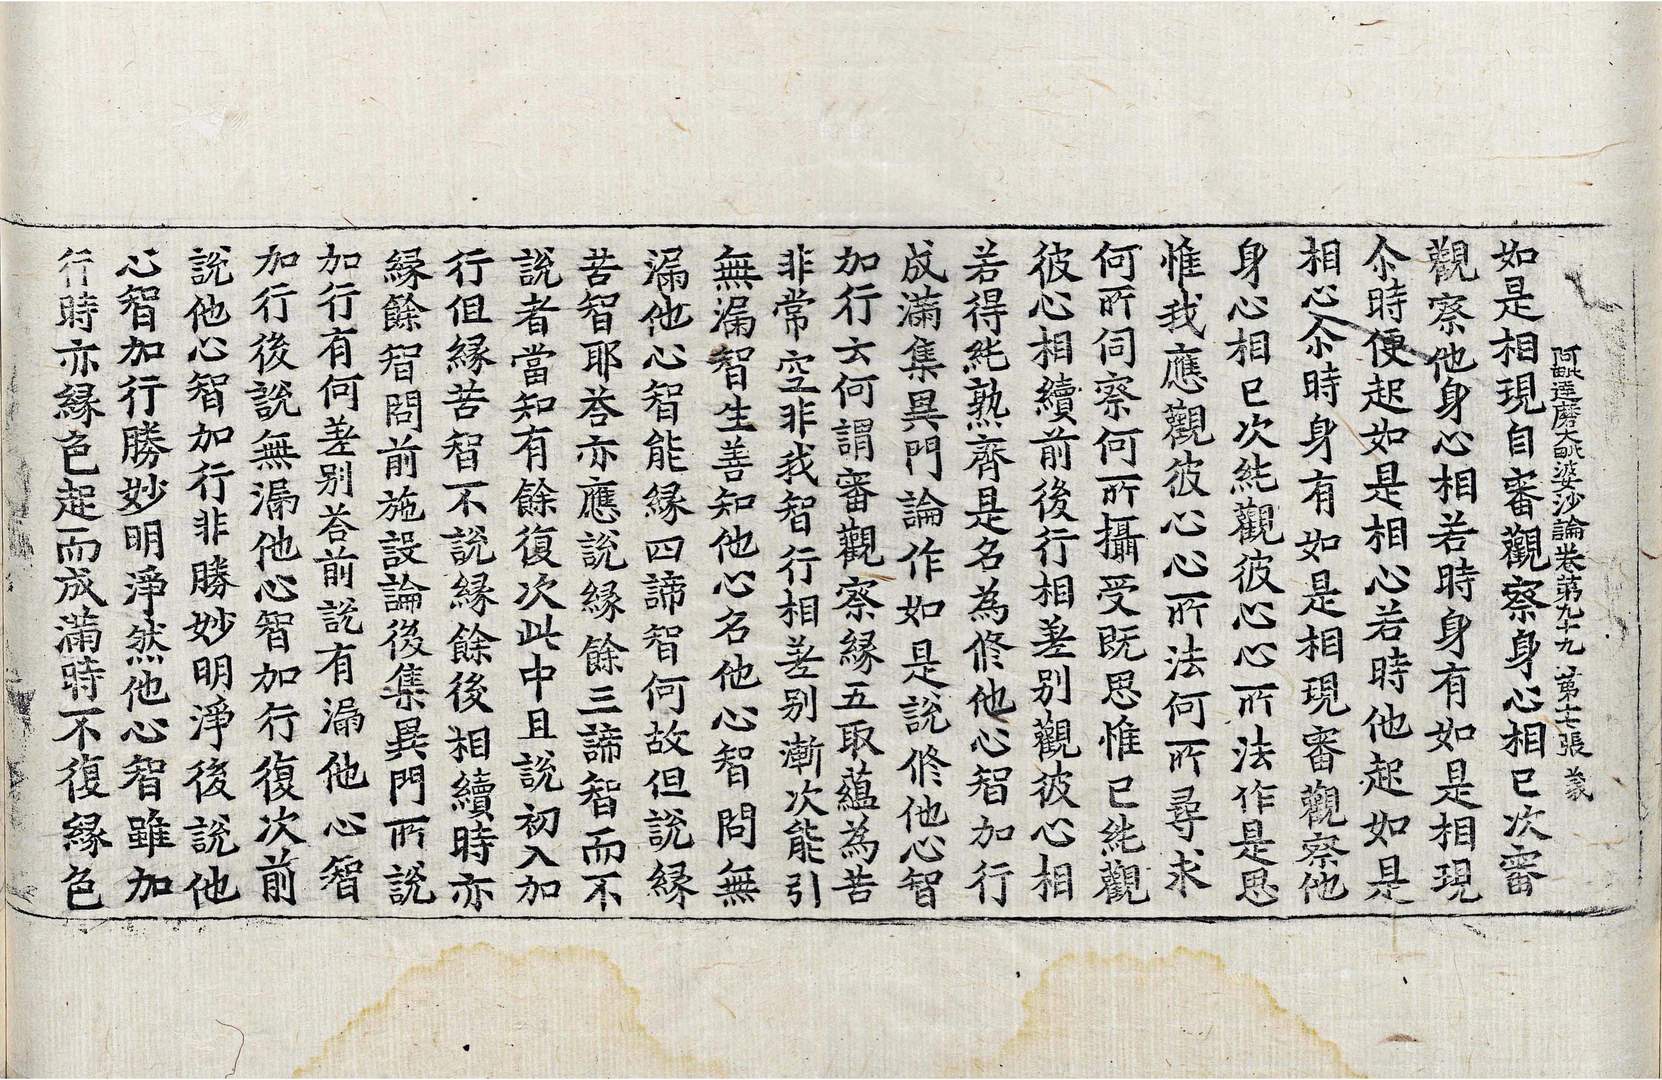 阿毗達磨大毗婆沙論卷第九十九 第十七張 義
如是相現自審觀察身心相已次審
觀察他身心相若時身有如是相現
尒時便起如是相心若時他起如是
相心尒時身有如是相現審觀察他
身心相已次純觀彼心心所法作是思
惟我應觀彼心心所法何所尋求
何所伺察何所攝受既思惟已純觀
彼心相續前後行相差別觀彼心相
若得純熟齊是名為修他心智加行
成滿集異門論作如是說修他心智
加行云何謂審觀察緣五取蘊為苦
非常空非我智行相差別漸次能引
無漏智生善知他心名他心智問無
漏他心智能緣四諦智何故但說緣
苦智耶荅亦應說緣餘三諦智而不
說者當知有餘復次此中且說初入加
行但緣苦智不說緣餘後相續時亦
緣餘智問前施設論後集異門所說
加行有何差別荅前說有漏他心智
加行後說無漏他心智加行復次前
說他心智加行非勝妙明淨後說他
心智加行勝妙明淨然他心智雖加
行時亦緣色起而成滿時不復緣色